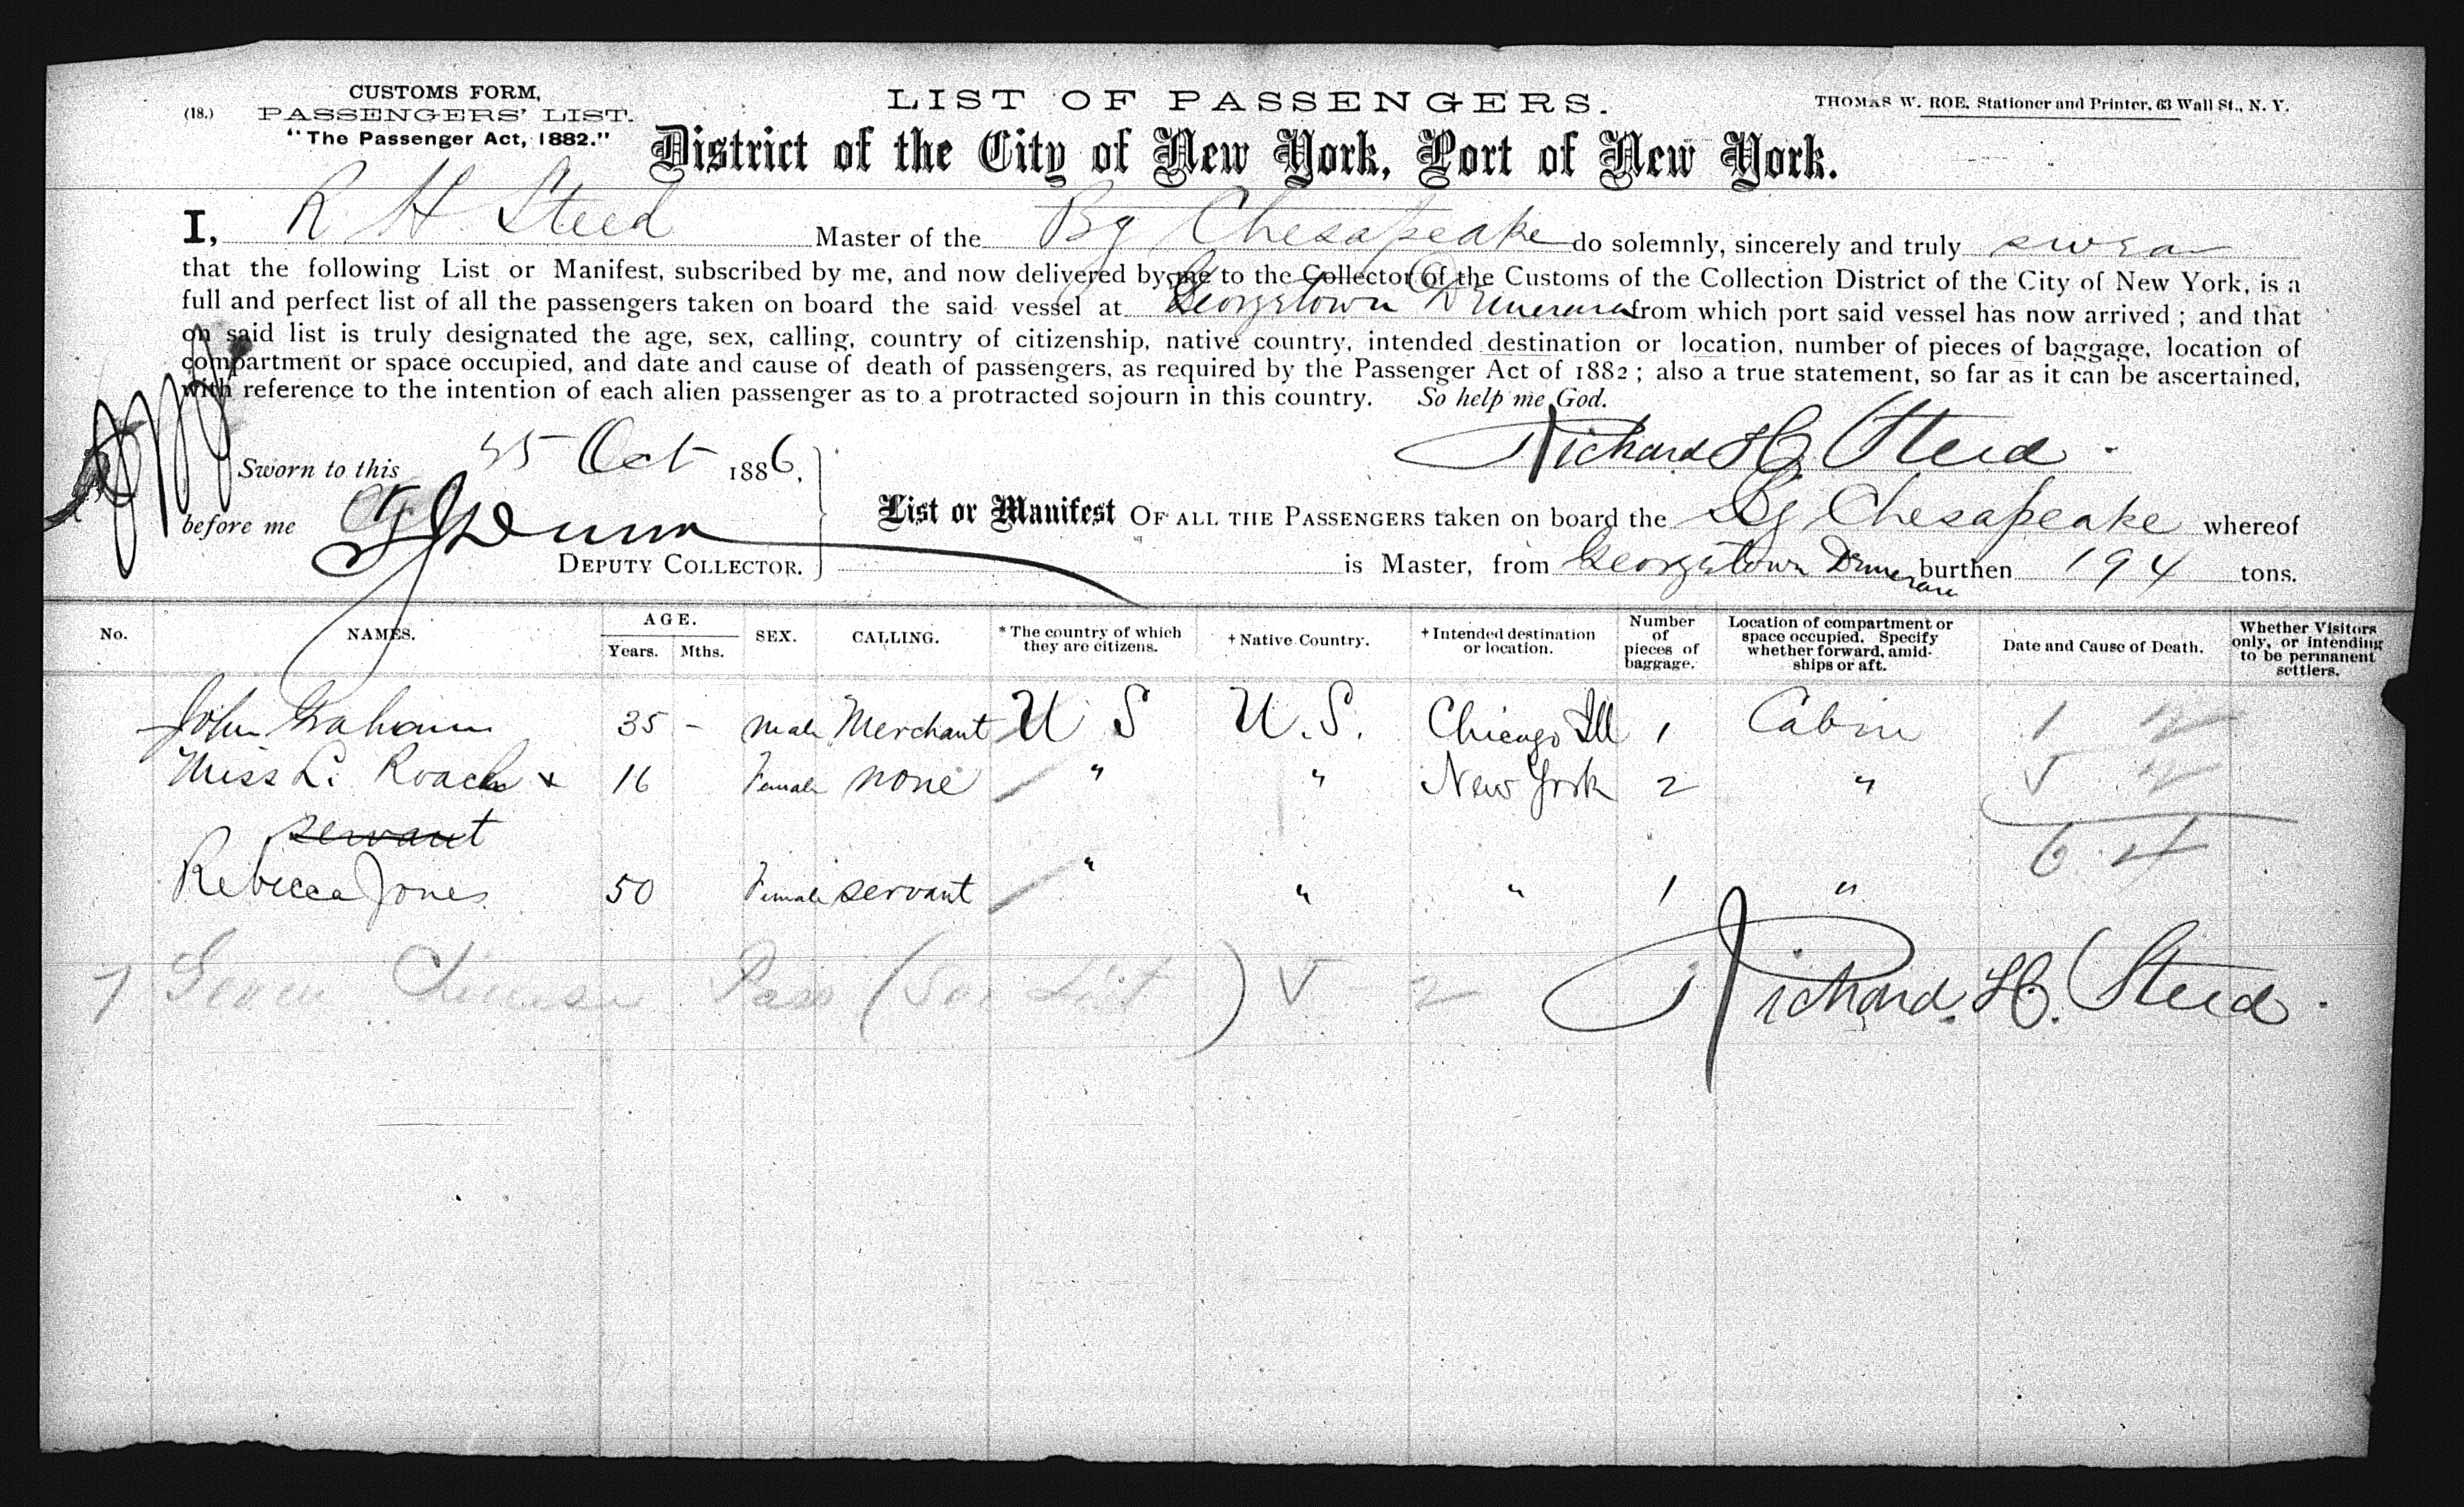 CUSTOMS FORM,
(18.) PASSENGERS' LIST.
"The Passenger Act, 1882."
LIST OF PASSENGERS.
THOMAS W. ROE, Stationer and Printer, 63 Wall St., N. Y.
District of the City of New York, Port of New York.
I, R H Steed Master of the Bg Chesapeake do solemnly, sincerely and truly swear
that the following List or Manifest, subscribed by me, and now delivered by me to the Collector of the Customs of the Collection District of the City of New York, is a
full and perfect list of all the passengers taken on board the said vessel at Georgetown Demerara from which port said vessel has now arrived ; and that
on said list is truly designated the age, sex, calling, country of citizenship, native country, intended destination or location, number of pieces of baggage, location of
compartment or space occupied, and date and cause of death of passengers, as required by the Passenger Act of 1882 ; also a true statement, so far as it can be ascertained,
with reference to the intention of each alien passenger as to a protracted sojourn in this country. So help me God.
Richard H. Steed.
Sworn to this 25 Oct 1886,
before me Dunn
DEPUTY COLLECTOR.
List or Manifest OF ALL THE PASSENGERS taken on board the Bg Chesapeake whereof
is Master, from Georgetown Demerara burthen 194 tons.
No. NAMES. AGE. Years. Mths. SEX. CALLING. * The country of which they are citizens. † Native Country. † Intended destination or location. Number of pieces of baggage. Location of compartment or space occupied. Specify whether forward, amidships or aft. Date and Cause of Death. Whether Visitors only, or intending to be permanent settlers.
John Graham 35 - Male Merchant U S U.S. Chicago Ill 1 Cabin 1
Miss L. Roach + 16 Female none " " New York 2 "
servant
Rebecca Jones 50 Female servant " " " 1 "
6 4
7 Seven Chinese Pass (See List) 2
Richard. H. Steed.